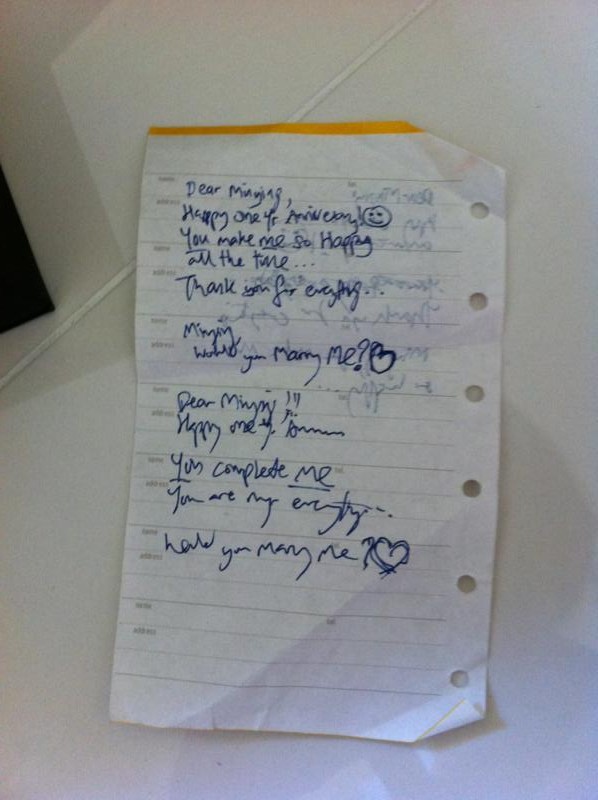 Dear Minying,
Happy one yr Anniversary!
You make me so Happy
all the time...
Thank you for everything...
Minying,
would you Marry Me?
Dear Minying !!!
Happy one yr
You complete me
You are my everything...
would you marry me?